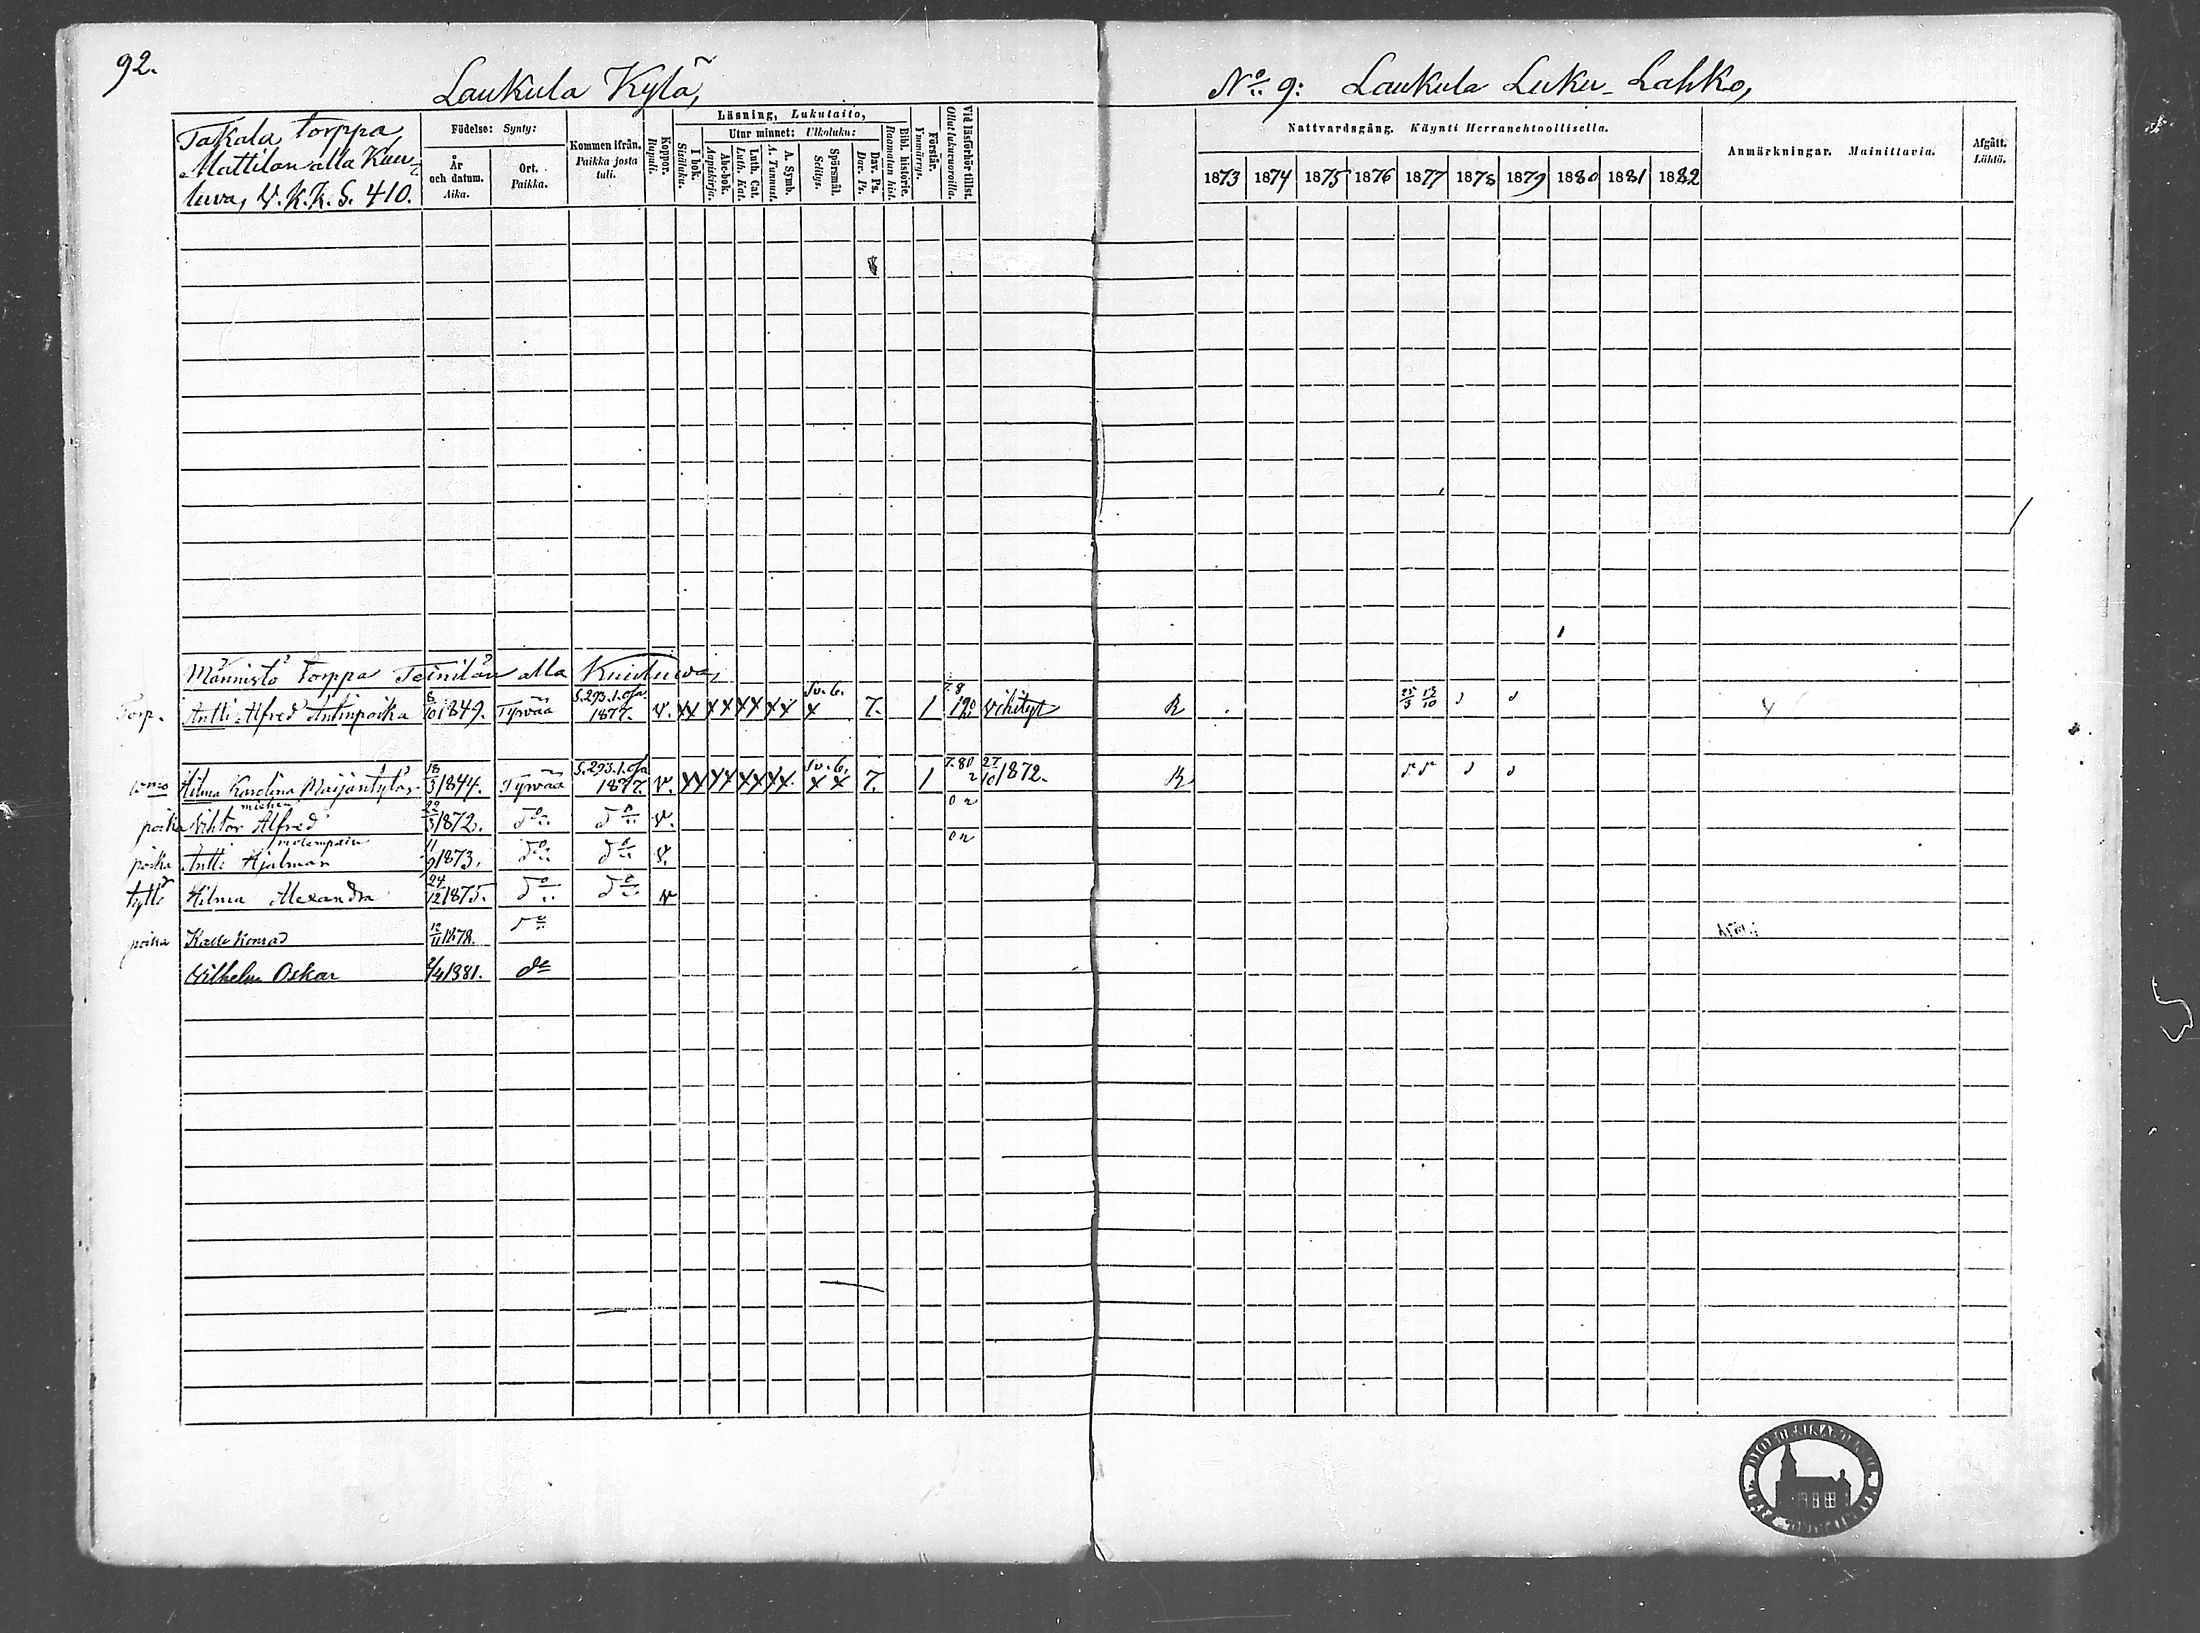 92.
Laukula Kylä,
No 9: Laukula Luku-Lahko,
Takala, torppa,
Mattilan alla Kuu-
luva, V. K. K. S. 410.
Födelse: Synty:
År och datum. Aika.
Ort. Paikka.
Kommen ifrån. Paikka josta tuli.
Koppor. Rupuli.
Läsning, Lukutaito,
I bok. Sisäluku.
Utur minnet: Ulkoluku:
Abc-bok. Aapiskirja.
Luth. Cat. Luth. Kat.
A. Symb. A. Tunnust.
Spörsmål. Selitys.
Dav. Ps. Dav. Ps.
Bibl. historie. Raamatun hist.
Förstår. Ymmärrys.
Vid läsförhör tillst. Ollut lukuvuoroilla.
Nattvardsgång. Käynti Herranehtoollisella.
1873 1874 1875 1876 1877 1878 1879 1880 1881 1882
Anmärkningar. Mainittavia.
Afgått. Lähtö.
Männistö torppa Teinilän alla Kuuluva,
Torp. Antti Alfred Antinpoika 8/10 1849. Tyrvää S. 293. 1. Osa 1877. v. xx xx xx xx x 7. 1 vihityt R 25/3 13/10
vmo Hilma Karolina Maijäntytär 18/3 1844. Tyrvää S. 293. 1. Osa 1877. v. xx xx xx xx x x 7. 1 27/10 1872. R
miehen
poika Vihtor Alfred 22/3 1872. do do v.
molempain
poika Antti Hjalmar 11/9 1873. do do v.
tyttö Hilma Alexandra 24/12 1875. do do v
poika Kalle Konrad 12/11 1878. do
Vilhelm Oskar 2/4 1881. do